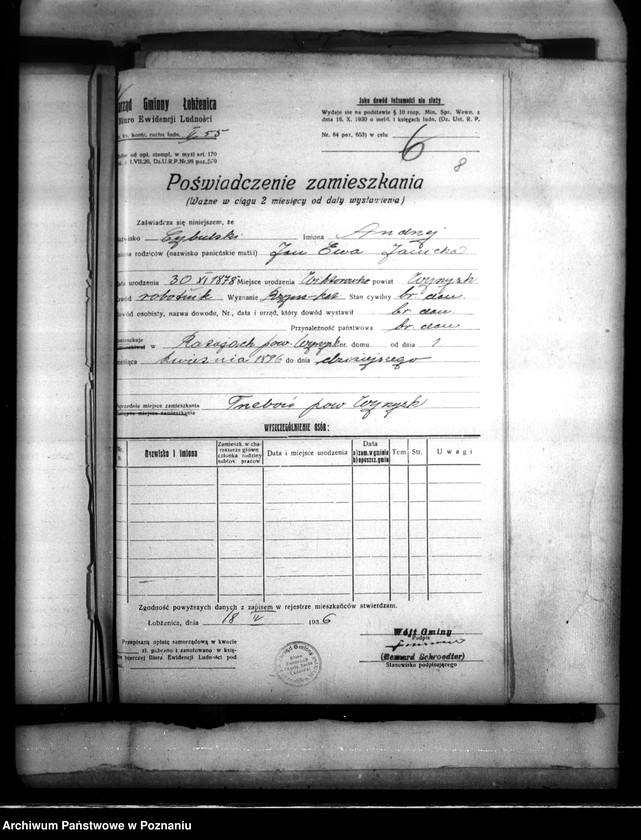 rząd Gminny Łobżenica
Biuro Ewidencji Ludności
kontr. ruchu ludn. 655
od opł. stempl. w myśl art. 170
1.VII.26. Dz.U.R.P.Nr.98 poz.570
Jako dowód tożsamości nie służy
Wydaje się na podstawie § 10 rozp. Min. Spr. Wewn. z
dnia 16. X. 1930 o meld. i księgach ludn. (Dz. Ust. R. P.
Nr. 84 poz. 653) w celu
6
8
Poświadczenie zamieszkania
(Ważne w ciągu 2 miesięcy od daty wystawienia)
Zaświadcza się niniejszem, że
zwisko Cybulski Imiona Andrzej
miona rodziców (nazwisko panieńskie matki) Jan Ewa Janicka
data urodzenia 30 XI 1878 Miejsce urodzenia Wiktorówko powiat Wyrzysk
Zawód robotnik Wyznanie Rzym-kat Stan cywilny br. dan.
Dowód osobisty, nazwa dowodu, Nr., data i urząd, który dowód wystawił br. dan.
Przynależność państwowa br. dan
w Ratajach pow. Wyrzysk nr. domu od dnia 1
miesiąca kwietnia 1896 do dnia dzisiejszego
Poprzednie miejsce zamieszkania
Następne miejsce zamieszkania
Trzeboń pow Wyrzysk
WYSZCZEGÓLNIENIE OSÓB:
Nazwisko i imiona
Zamieszk. w charakterze głowy członka rodziny sublok. pracow.
Data i miejsce urodzenia
Data
a) zam. w gminie
b) opuszcz. gmin
Tom
Str.
Uwagi
Zgodność powyższych danych z zapisem w rejestrze mieszkańców stwierdzam.
Łobżenica, dnia 18 V 1936
Przepisaną opłatę samorządową w kwocie
zł. pobrano i zanotowano w księ-
bierczej Biura Ewidencji Ludności pod
Wójt Gminy
Podpis
(Bernard Schroedter)
Stanowisko podpisującego
Archiwum Państwowe w Poznaniu